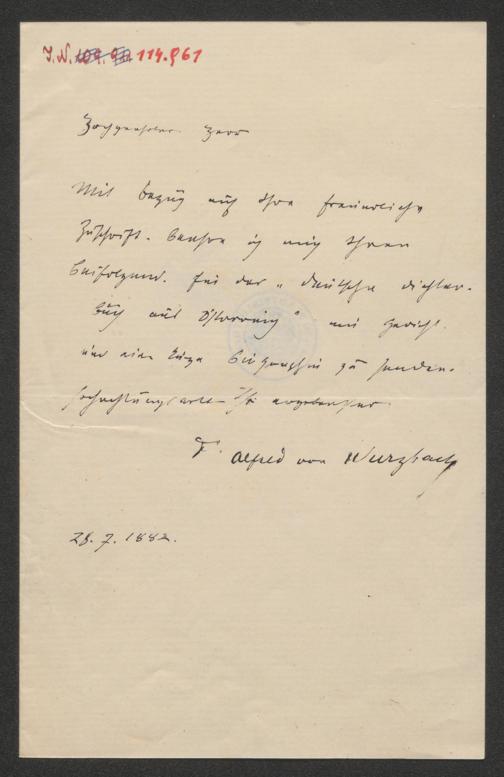 J.N. 114.861
Hochgeehrter Herr
Mit Bezug auf Ihre freundliche
Zuschrift. beehre ich mich Ihnen
beifolgend. für das „Deutsche Dichter-
buch aus Österreich" ein Gedicht.
und eine kurze Biographie zu senden.
Hochachtungsvoll Ihr ergebenster
Dr. Alfred von Wurzbach
28. 7. 1882.